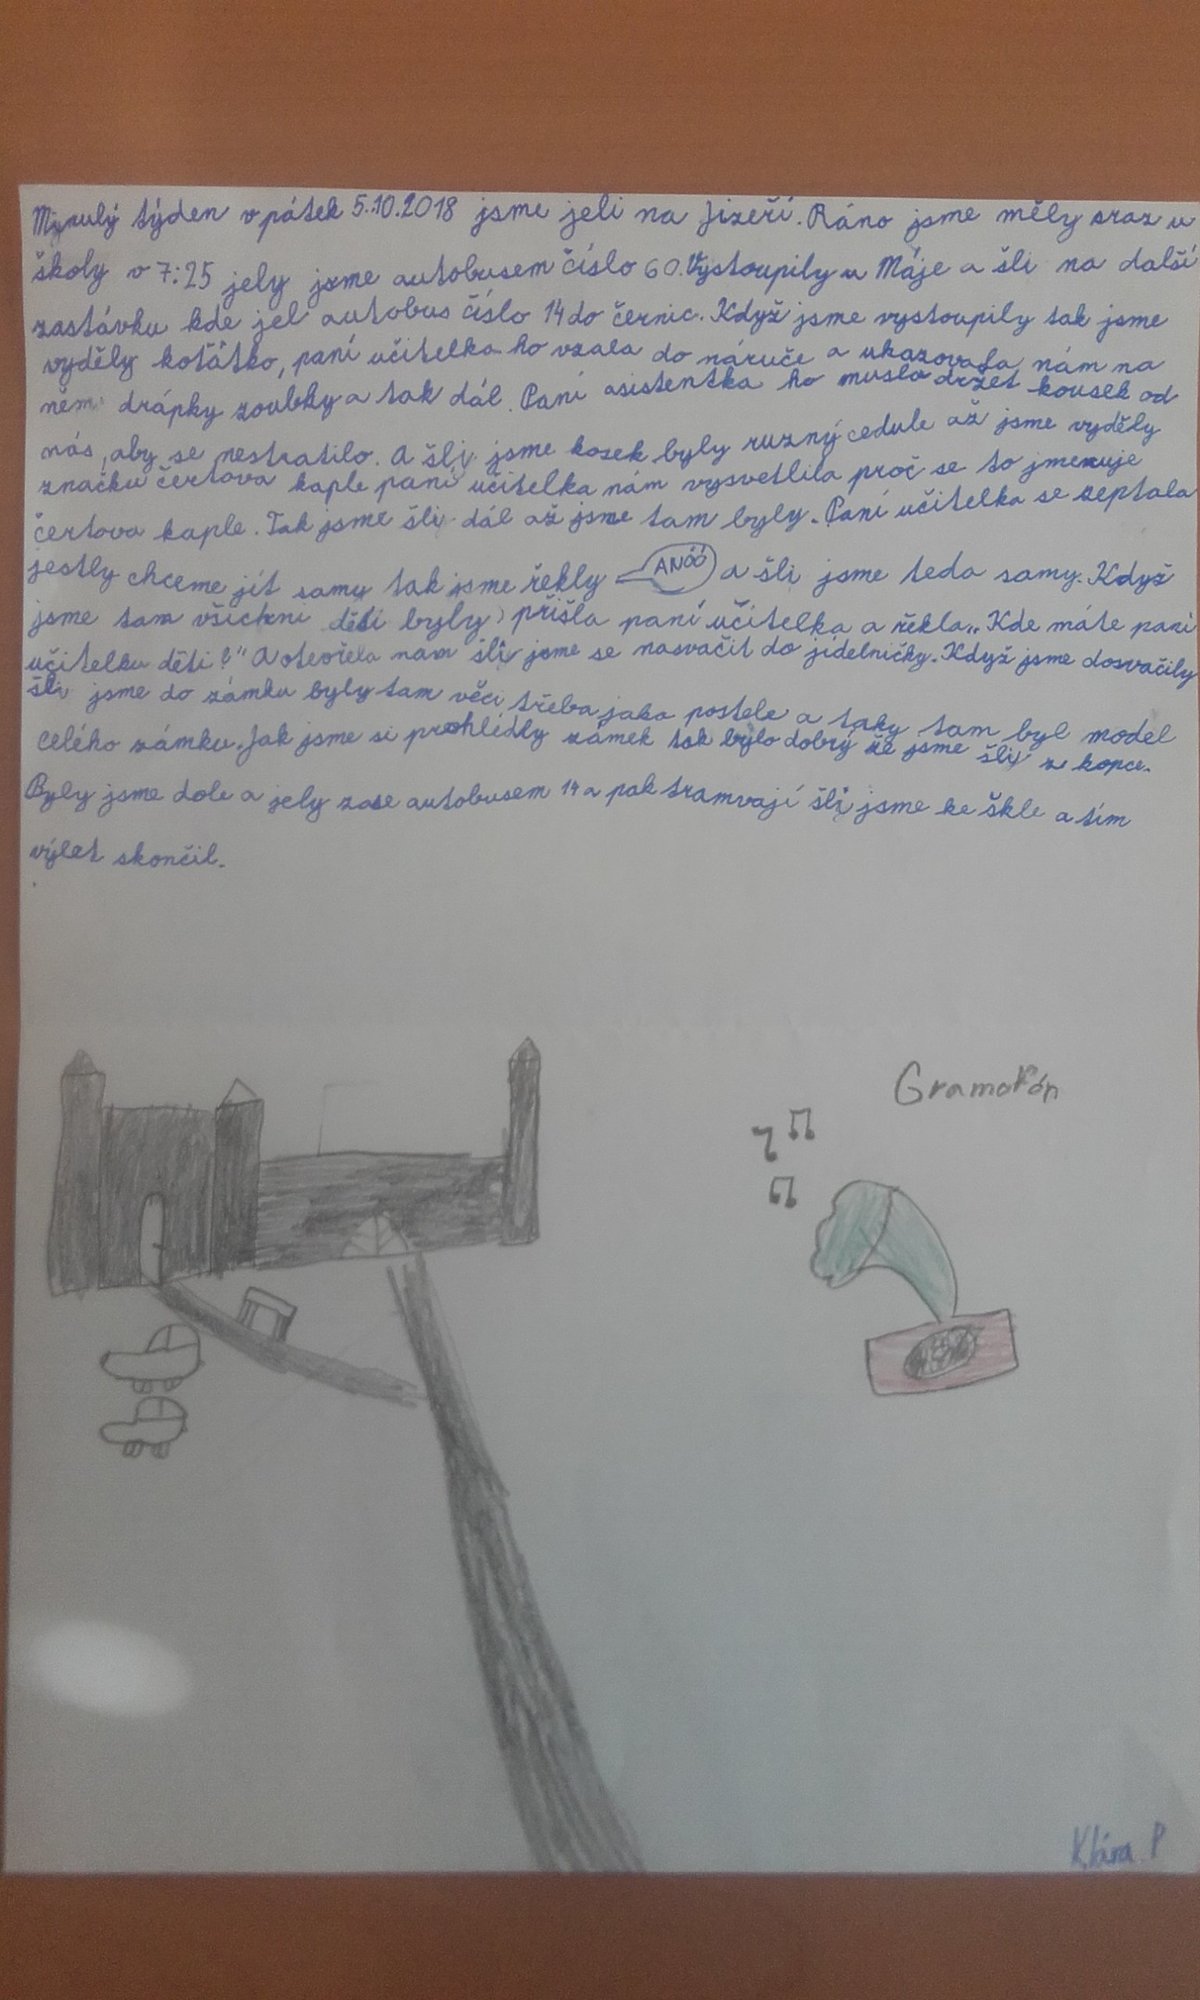 Mynulý týden v pátek 5.10.2018 jsme jeli na Jizeří. Ráno jsme měly sraz u
školy v 7:25 jely jsme autobusem číslo 60. Vystoupily u Máje a šli na další
zastávku kde jel autobus číslo 14 do černic. Když jsme vystoupily tak jsme
vyděly koťátko, paní učitelka ho vzala do náruče a ukazovala nám na
něm drápky zoubky a tak dál. Paní asistentka ho musla držet kousek od
nás, aby se nestratilo. A šli jsme kosek byly ruzný cedule až jsme vyděly
značku čertova kaple paní učitelka nám vysvetlila proč se to jmenuje
čertova kaple. Tak jsme šli dál až jsme tam byly. Paní učitelka se zeptala
jestly chceme jít samy tak jsme řekly ANÓÓ a šli jsme teda samy. Když
jsme tam všichni děti byly, přišla paní učitelka a řekla„ Kde máte paní
učitelku děti?" A oteořela nam šli jsme se nasvačit do jídelničky. Když jsme dosvačily
šli jsme do zámku byly tam věci třeba jako postele a taky tam byl model
celého zámku. Jak jsme si prohlídly zámek tak bylo dobrý že jsme šli z kopce.
Byly jsme dole a jely zase autobusem 14 a pak tramvají šli jsme ke škle a tím
výlet skončil.
Gramofón
Klára P